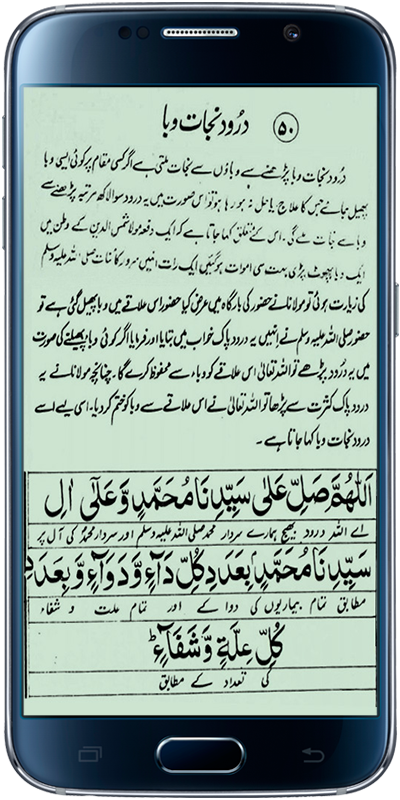 ۵۰ درود نجات وبا
درود نجات وبا پڑھنے سے وباؤں سے نجات ملتی ہے اگر کسی مقام پر کوئی ایسی وبا
پھیل جائے جس کا علاج یا حل نہ ہو رہا ہو تو اس صورت میں یہ درود سوا لاکھ مرتبہ پڑھنے سے
وبا سے نجات ملے گی۔ اس کے متعلق کہا جاتا ہے کہ ایک دفعہ مولانا شمس الدین کے وطن میں
ایک وبا پھوٹ پڑی بہت سی اموات ہو گئیں ایک رات انہیں سرور کائنات صلی اللہ علیہ وسلم
کی زیارت ہوئی تو مولانا نے حضور کی بارگاہ میں عرض کیا حضور اس علاقے میں وبا پھیل گئی ہے تو
حضور صلی اللہ علیہ وسلم نے انہیں یہ درود پاک خواب میں بتایا اور فرمایا اگر کوئی وبا پھیلنے کی صورت
میں یہ درود پڑھے تو اللہ تعالیٰ اس علاقے کو وباء سے محفوظ کرے گا۔ چنانچہ مولانا نے یہ
درود پاک کثرت سے پڑھا تو اللہ تعالیٰ نے اس علاقے سے وبا کو ختم کر دیا۔ اسی لیے اسے
درود نجات وبا کہا جاتا ہے۔
اَللّٰهُمَّ صَلِّ عَلٰی سَیِّدِنَا مُحَمَّدٍ وَّعَلٰٓی اٰلِ
اے اللہ درود بھیج ہمارے سردار محمد صلی اللہ علیہ وسلم اور سردار محمدؐ کی آل پر
سَیِّدِنَا مُحَمَّدٍۭ بِعَدَدِ كُلِّ دَآءٍ وَّدَوَآءٍ وَّبِعَدَدِ
مطابق تمام بیماریوں کی دوا کے اور تمام علت و شفاء
كُلِّ عِلَّةٍ وَّشَفَآءٍؕ
کی تعداد کے مطابق